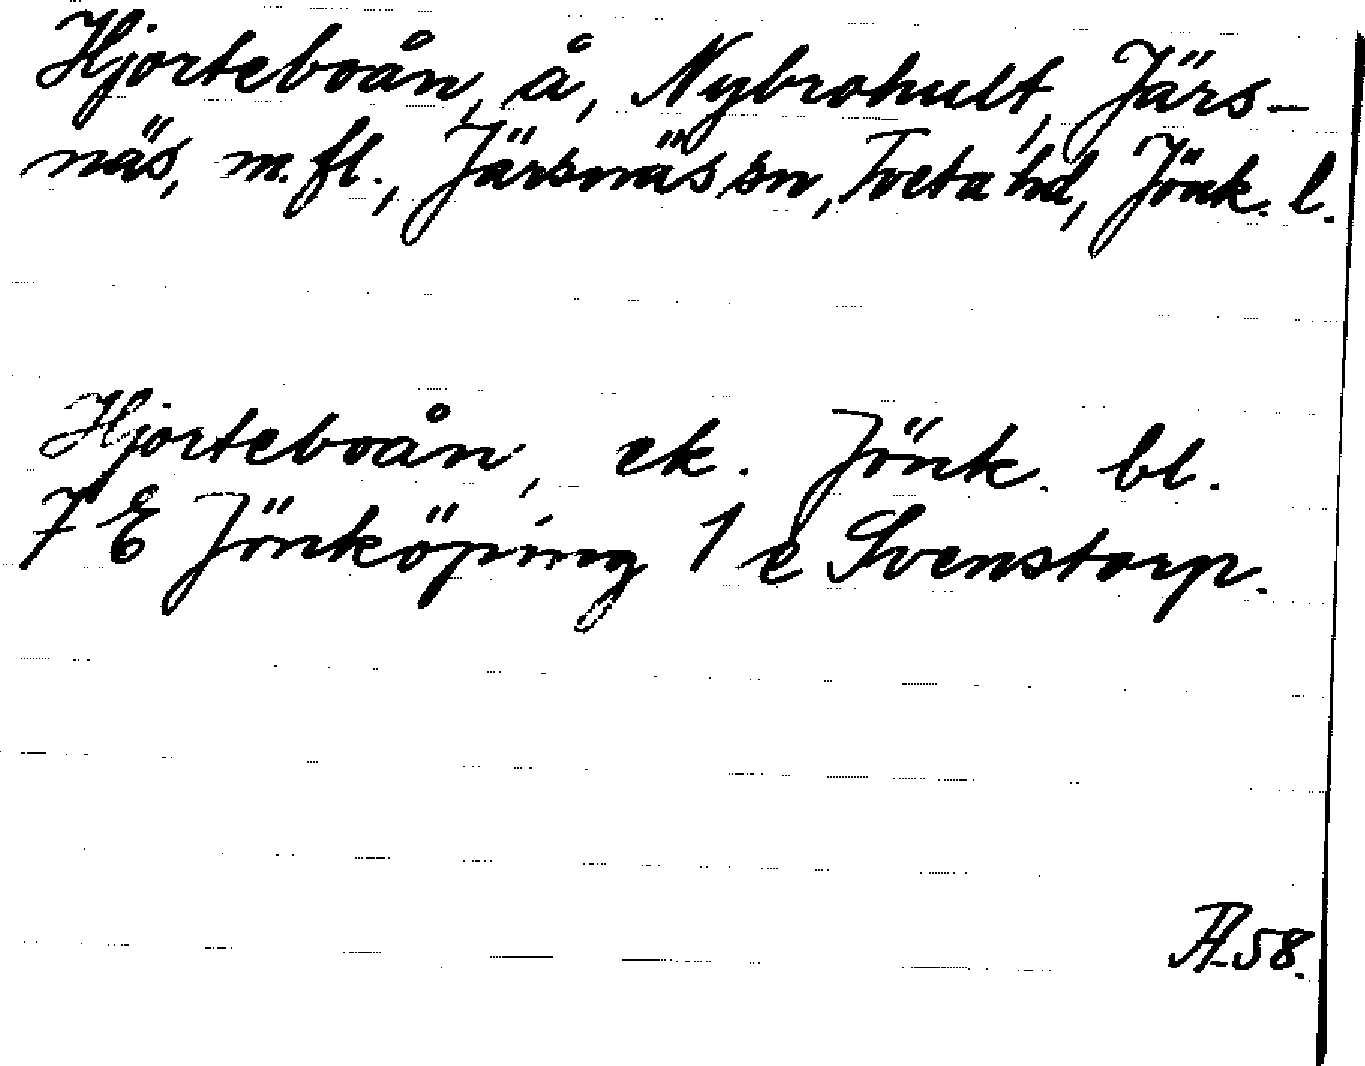 Hjorteboån, å, Nybrohult, Järs-
näs, m.fl., Järsnäs sn, Tveta hd, Jönk. l.
Hjorteboån, ek. Jönk. bl.
7 E Jönköping 1 e Svenstorp.
58.